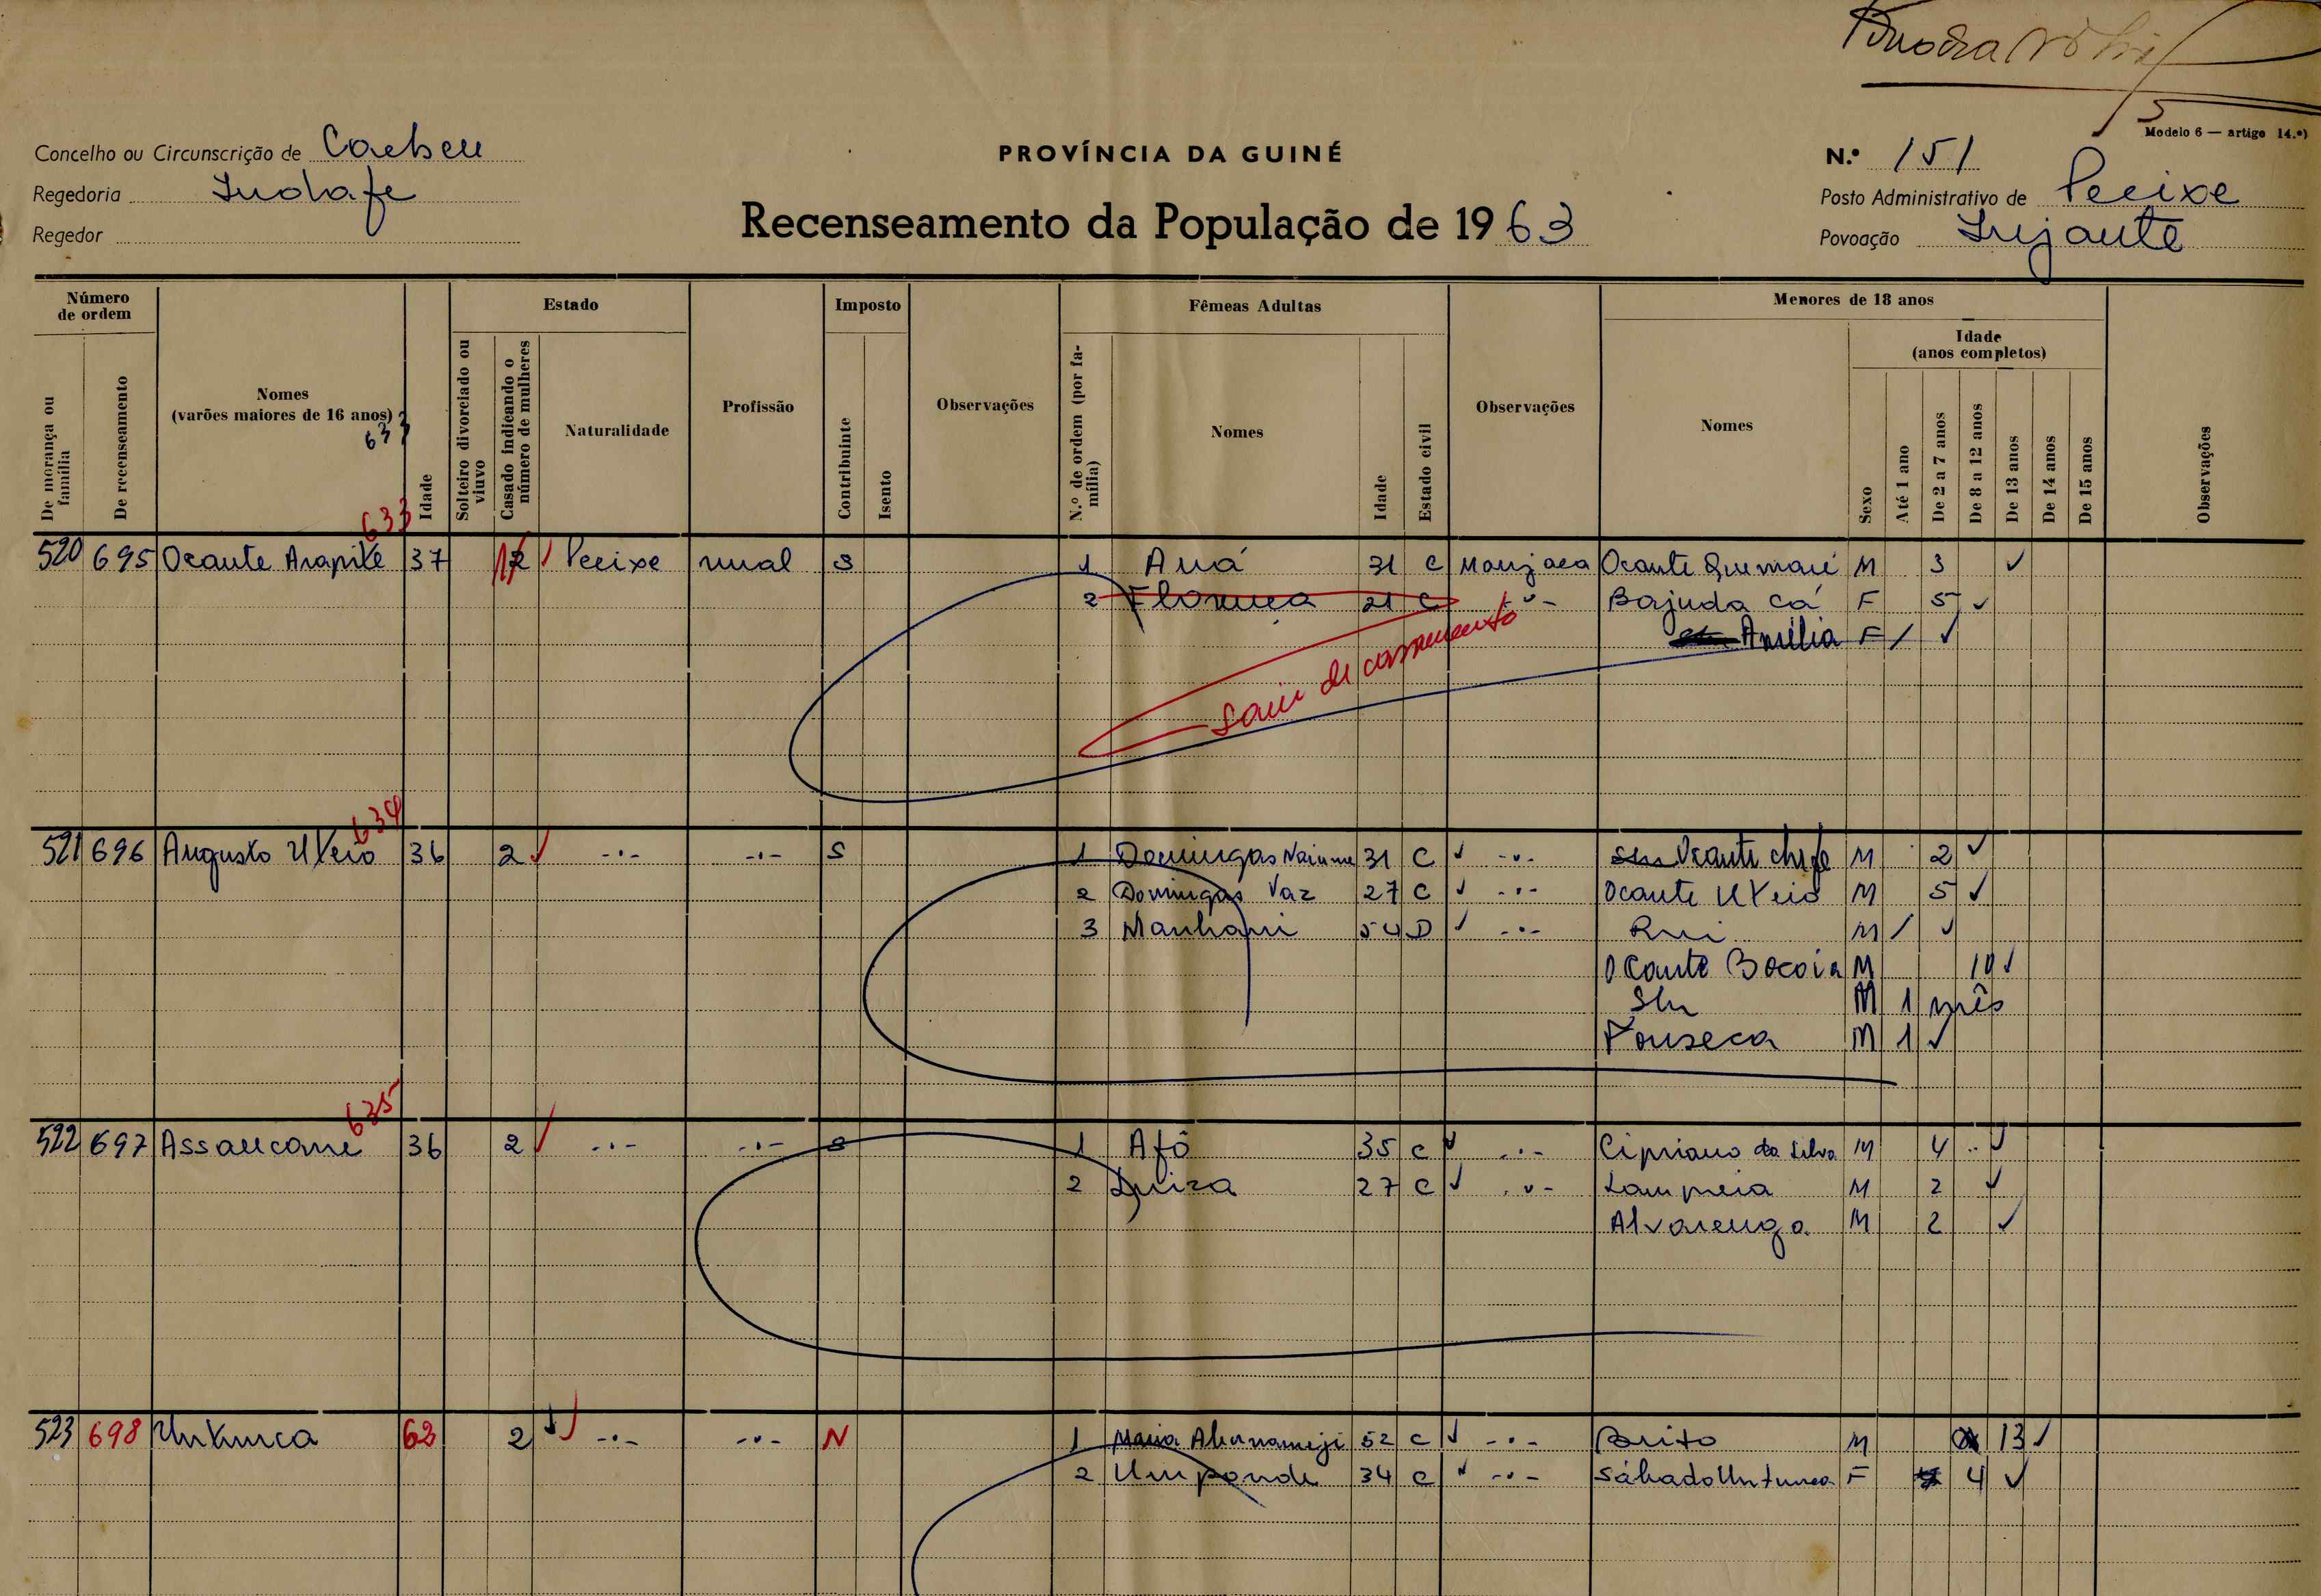 Modelo 6 — artigo 14.º)
Concelho ou Circunscrição de Caebeu
PROVÍNCIA DA GUINÉ
N.º 151
Regedoria
Recenseamento da População de 1963
Posto Administrativo de Pecixe
Regedor
Povoação
Número de ordem
Estado
Imposto
Fêmeas Adultas
Menores de 18 anos
Idade
(anos completos)
De morança ou família
De recenseamento
Nomes
(varões maiores de 16 anos)
637
Idade
Solteiro divorciado ou viuvo
Casado indicando o número de mulheres
Naturalidade
Profissão
Contribuinte
Isento
Observações
N.º de ordem (por família)
Nomes
Idade
Estado civil
Observações
Nomes
Sexo
Até 1 ano
De 2 a 7 anos
De 8 a 12 anos
De 13 anos
De 14 anos
De 15 anos
Observações
633
520 695 Ocante Arapite 37 2 Pecixe rural S 1 Auá 31 C Manjaca Ocante Quemari M 3
2 21 C -"- Bajuda Cá F 5
Amélia F
Saiu de casamento
634
521 696 Augusto 36 2 -"- -"- S 1 Domingas Naiume 31 C -"- Ocante Chefe M 2
2 Domingas Vaz 27 C -"- Ocante M 5
3 Manhani 54 D -"- Rui M
Ocante Bocoia M 10
S/n M 1 mês
Fonseca M 1
635
522 697 Assaucame 36 2 -"- -"- S 1 Afô 35 C -"- Cipriano da Silva M 4
2 Luiza 27 C -"- Lampreia M 2
Alvarenga M 2
523 698 62 2 -"- -"- N 1 Maria 52 C -"- Brito M 13
2 Umpande 34 C -"- Sábado F 4